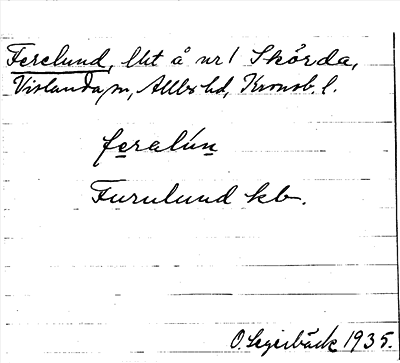 Ferelund, lht å nr 1 Skörda,
Vislanda sn, Allbo hd, Kronob. l.
feralún
Furulund kb.
O. Segerbäck 1935.